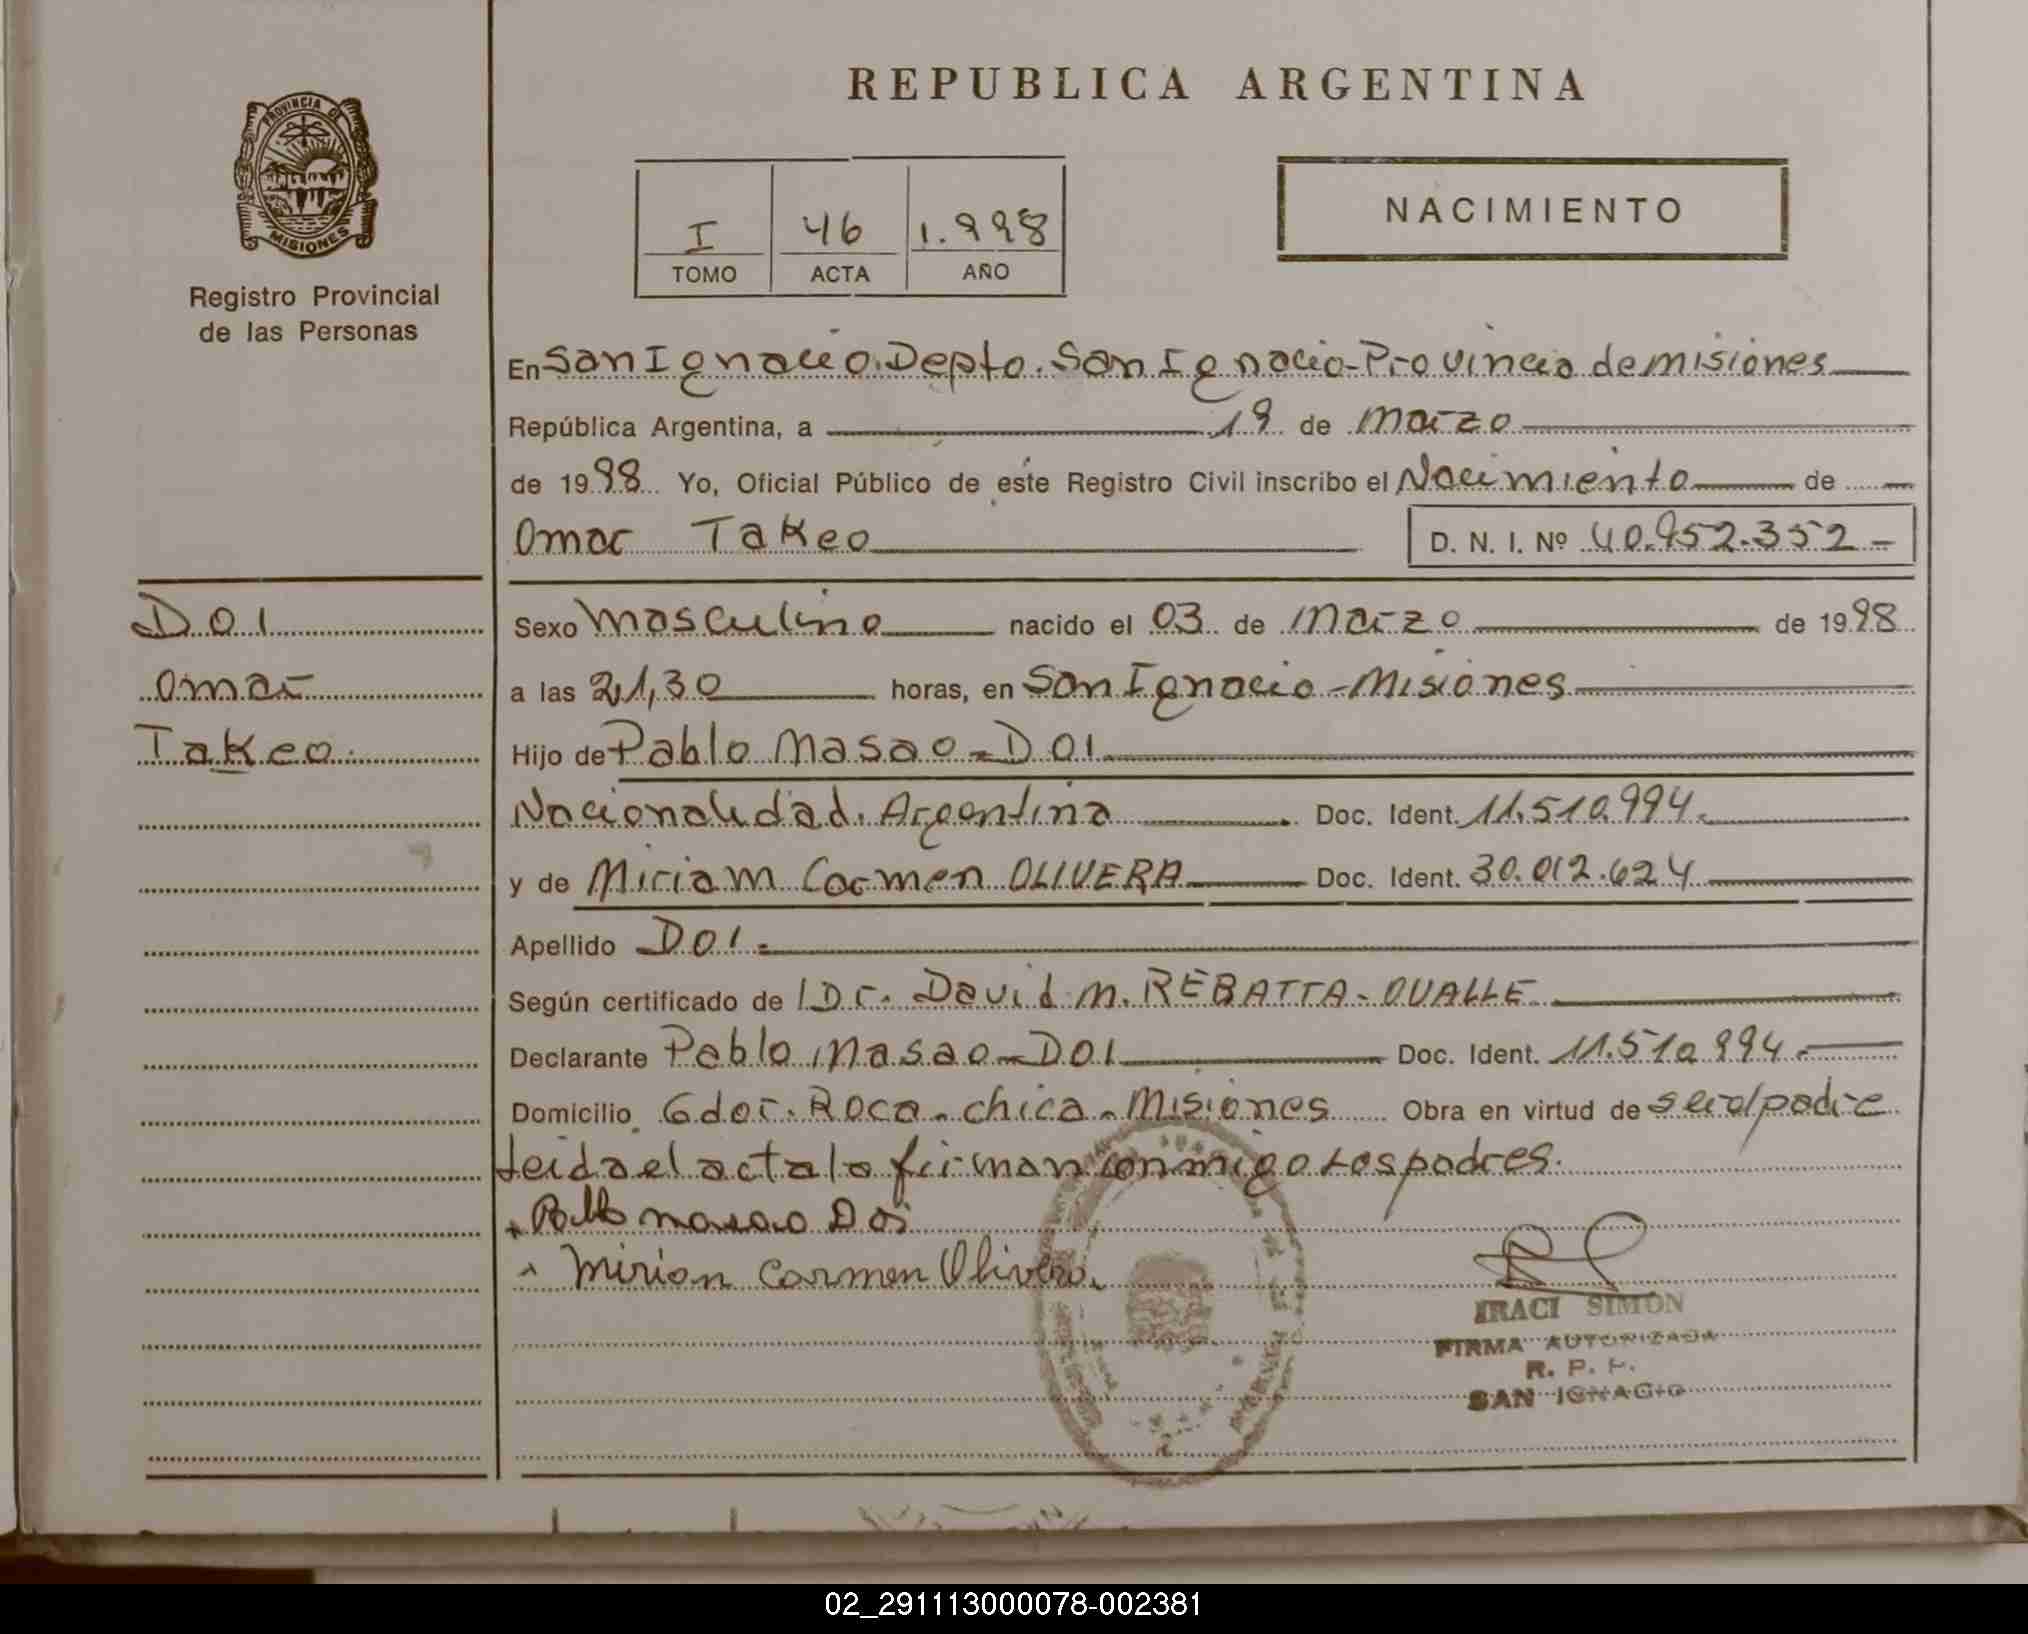 REPUBLICA ARGENTINA
PROVINCIA DE
MISIONES
Registro Provincial
de las Personas
I 46 1.998
TOMO ACTA AÑO
NACIMIENTO
En San Ignacio. Depto. San Ignacio - Provincia de misiones
República Argentina, a 19 de marzo
de 1998 Yo, Oficial Público de este Registro Civil inscribo el Nacimiento de
Omar Takeo D. N. I. Nº 40.952.352 -
DOI
Omar
Takeo.
Sexo masculino nacido el 03 de marzo de 1998
a las 21,30 horas, en San Ignacio - Misiones
Hijo de Pablo Masao - DOI
Nacionalidad. Argentina Doc. Ident. 11.510.994.
y de Miriam Carmen OLIVERA Doc. Ident. 30.012.624
Apellido DOI.
Según certificado de Dr. David M. REBATTA - OVALLE
Declarante Pablo Masao - DOI Doc. Ident. 11.510.994.
Domicilio Gdor. Roca - chica - Misiones Obra en virtud de ser el padre
Leida el acta la firman conmigo Los padres.
Pablo masao Doi
Mirian Carmen Olivera.
IRACI SIMON
FIRMA AUTORIZADA
R. P. P.
SAN IGNACIO
02_291113000078-002381